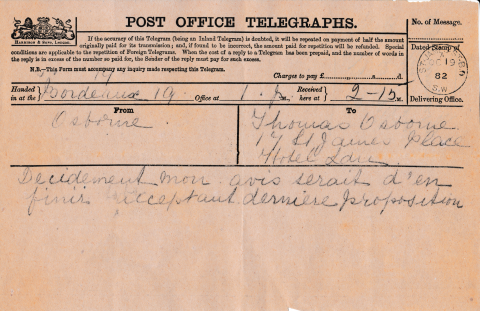 POST OFFICE TELEGRAPHS.
No. of Message.
HARRISON & SONS, LONDON.
If the accuracy of this Telegram (being an Inland Telegram) is doubted, it will be repeated on payment of half the amount
originally paid for its transmission; and, if found to be incorrect, the amount paid for repetition will be refunded. Special
conditions are applicable to the repetition of Foreign Telegrams. When the cost of a reply to a Telegram has been prepaid, and the number of words
in the reply is in excess of the number so paid for, the Sender of the reply must pay for such excess.
N.B.—This Form must accompany any inquiry made respecting this Telegram.
Charges to pay £ s. d.
Dated Stamp of
19
82
S.W
Delivering Office.
Handed in at the Bordeaux 19 Office at 1. P. Received here at 2-15
From
To
Osborne
Thomas Osborne
17 St James Place
Hotel
Decidement mon avis serait d'en
finir acceptant derniere proposition